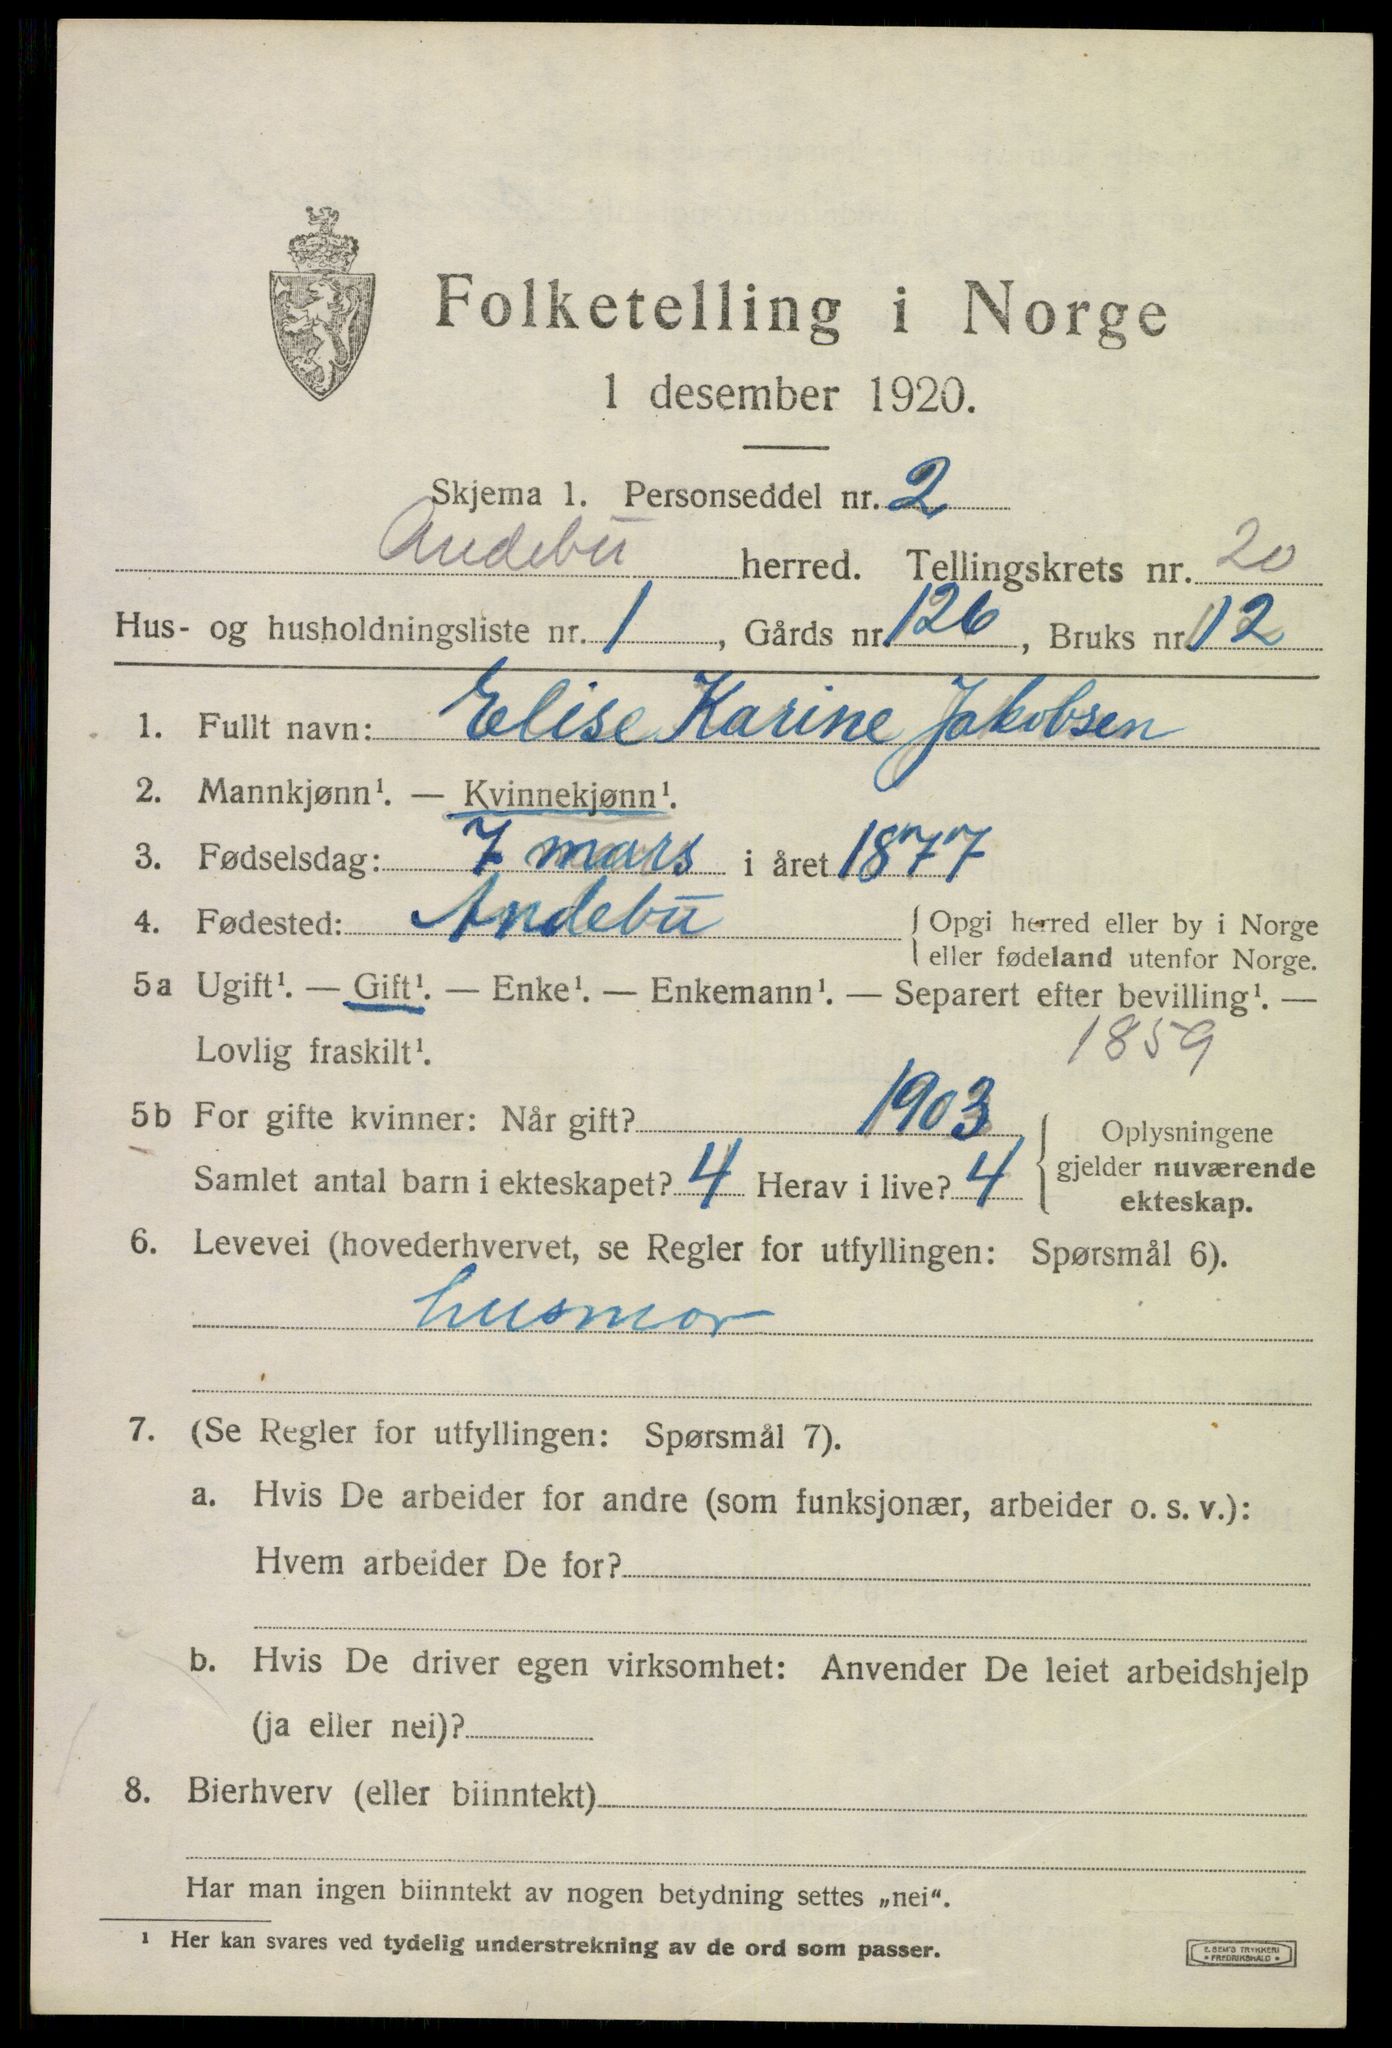 Folketelling i Norge
1 desember 1920.
Skjema 1. Personseddel nr. 2
Andebu herred. Tellingskrets nr. 20
Hus- og husholdningsliste nr. 1, Gårds nr. 126, Bruks nr. 12
1. Fullt navn: Elise Karine Jakobsen
2. Mannkjønn¹. — Kvinnekjønn¹.
3. Fødselsdag: 7 mars i året 1877
4. Fødested: Andebu { Opgi herred eller by i Norge
eller fødeland utenfor Norge.
5a Ugift¹. — Gift¹. — Enke¹. — Enkemann¹. — Separert efter bevilling¹. —
Lovlig fraskilt¹. 1859
5b For gifte kvinner: Når gift? 1903
Samlet antal barn i ekteskapet? 4 Herav i live? 4
Oplysningene
gjelder nuværende
ekteskap.
6. Levevei (hovederhvervet, se Regler for utfyllingen: Spørsmål 6).
husmor
7. (Se Regler for utfyllingen: Spørsmål 7).
a. Hvis De arbeider for andre (som funksjonær, arbeider o. s. v.):
Hvem arbeider De for?
b. Hvis De driver egen virksomhet: Anvender De leiet arbeidshjelp
(ja eller nei)?
8. Bierhverv (eller biinntekt)
Har man ingen biinntekt av nogen betydning settes „nei“.
¹ Her kan svares ved tydelig understrekning av de ord som passer.
E. SEM'S TRYKKERI
FREDRIKSHALD